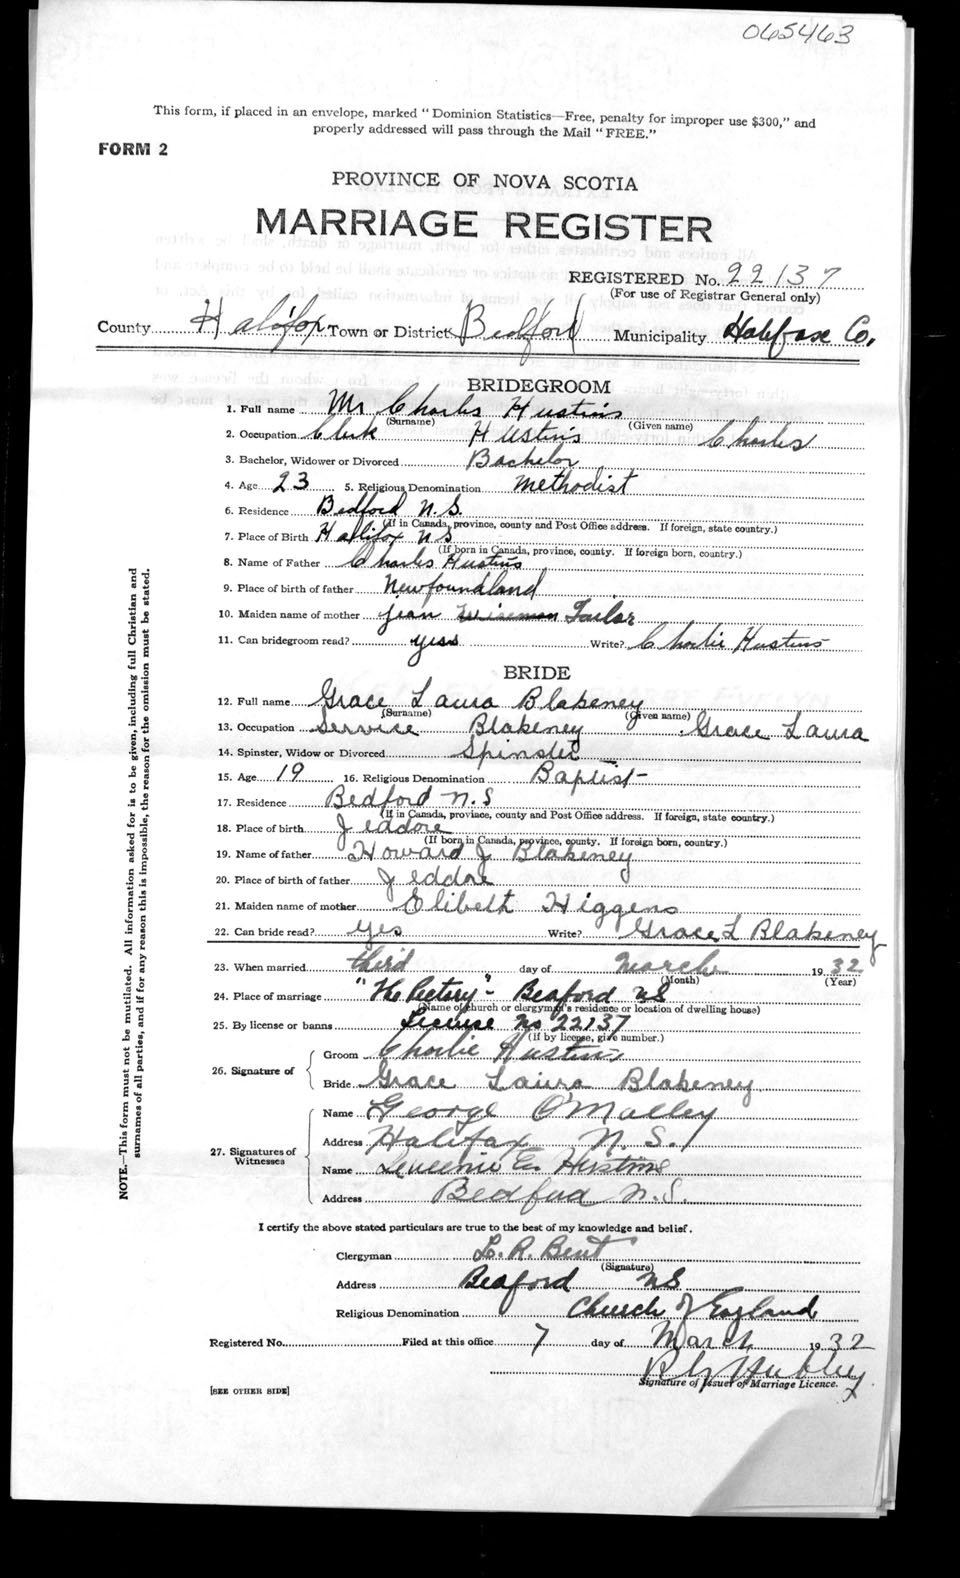 065463
This form, if placed in an envelope, marked "Dominion Statistics—Free, penalty for improper use $300," and
properly addressed will pass through the Mail "FREE."
FORM 2
PROVINCE OF NOVA SCOTIA
MARRIAGE REGISTER
REGISTERED No. 22137
(For use of Registrar General only)
County Halifax Town or District Bedford Municipality Halifax Co,
BRIDEGROOM
1. Full name Mr Charles Hustins
(Surname) (Given name)
2. Occupation Clerk Hustins Charles
3. Bachelor, Widower or Divorced Bachelor
4. Age 23 5. Religious Denomination Methodist
6. Residence Bedford N.S.
(If in Canada, province, county and Post Office address. If foreign, state country.)
7. Place of Birth Halifax NS
(If born in Canada, province, county. If foreign born, country.)
8. Name of Father Charles Hustins
9. Place of birth of father Newfoundland
10. Maiden name of mother Jean Wiseman Tailor
11. Can bridegroom read? yes Write? Charlie Hustins
BRIDE
12. Full name Grace Laura Blakeney
(Surname) (Given name)
13. Occupation Service Blakeney Grace Laura
14. Spinster, Widow or Divorced Spinster
15. Age 19 16. Religious Denomination Baptist
17. Residence Bedford N.S
(If in Canada, province, county and Post Office address. If foreign, state country.)
18. Place of birth Jeddore
(If born in Canada, province, county. If foreign born, country.)
19. Name of father Howard J Blakeney
20. Place of birth of father Jeddore
21. Maiden name of mother Elibeth Higgens
22. Can bride read? yes Write? Grace L Blakeney
23. When married third day of March 1932
(Month) (Year)
24. Place of marriage "The Rectory"- Bedford NS
(Name of church or clergyman's residence or location of dwelling house)
25. By license or banns License No 22137
(If by license, give number.)
26. Signature of
Groom Charlie Hustins
Bride Grace Laura Blakeney
27. Signatures of Witnesses
Name George O'Malley
Address Halifax N.S.
Name E. Hustins
Address Bedford N.S.
I certify the above stated particulars are true to the best of my knowledge and belief.
Clergyman L. R. Bent
(Signature)
Address Bedford NS
Religious Denomination Church of England
Registered No. Filed at this office 7 day of March 1932
Hubley
Signature of Issuer of Marriage Licence.
[SEE OTHER SIDE]
NOTE.—This form must not be mutilated. All information asked for is to be given, including full Christian and
surnames of all parties, and if for any reason this is impossible, the reason for the omission must be stated.